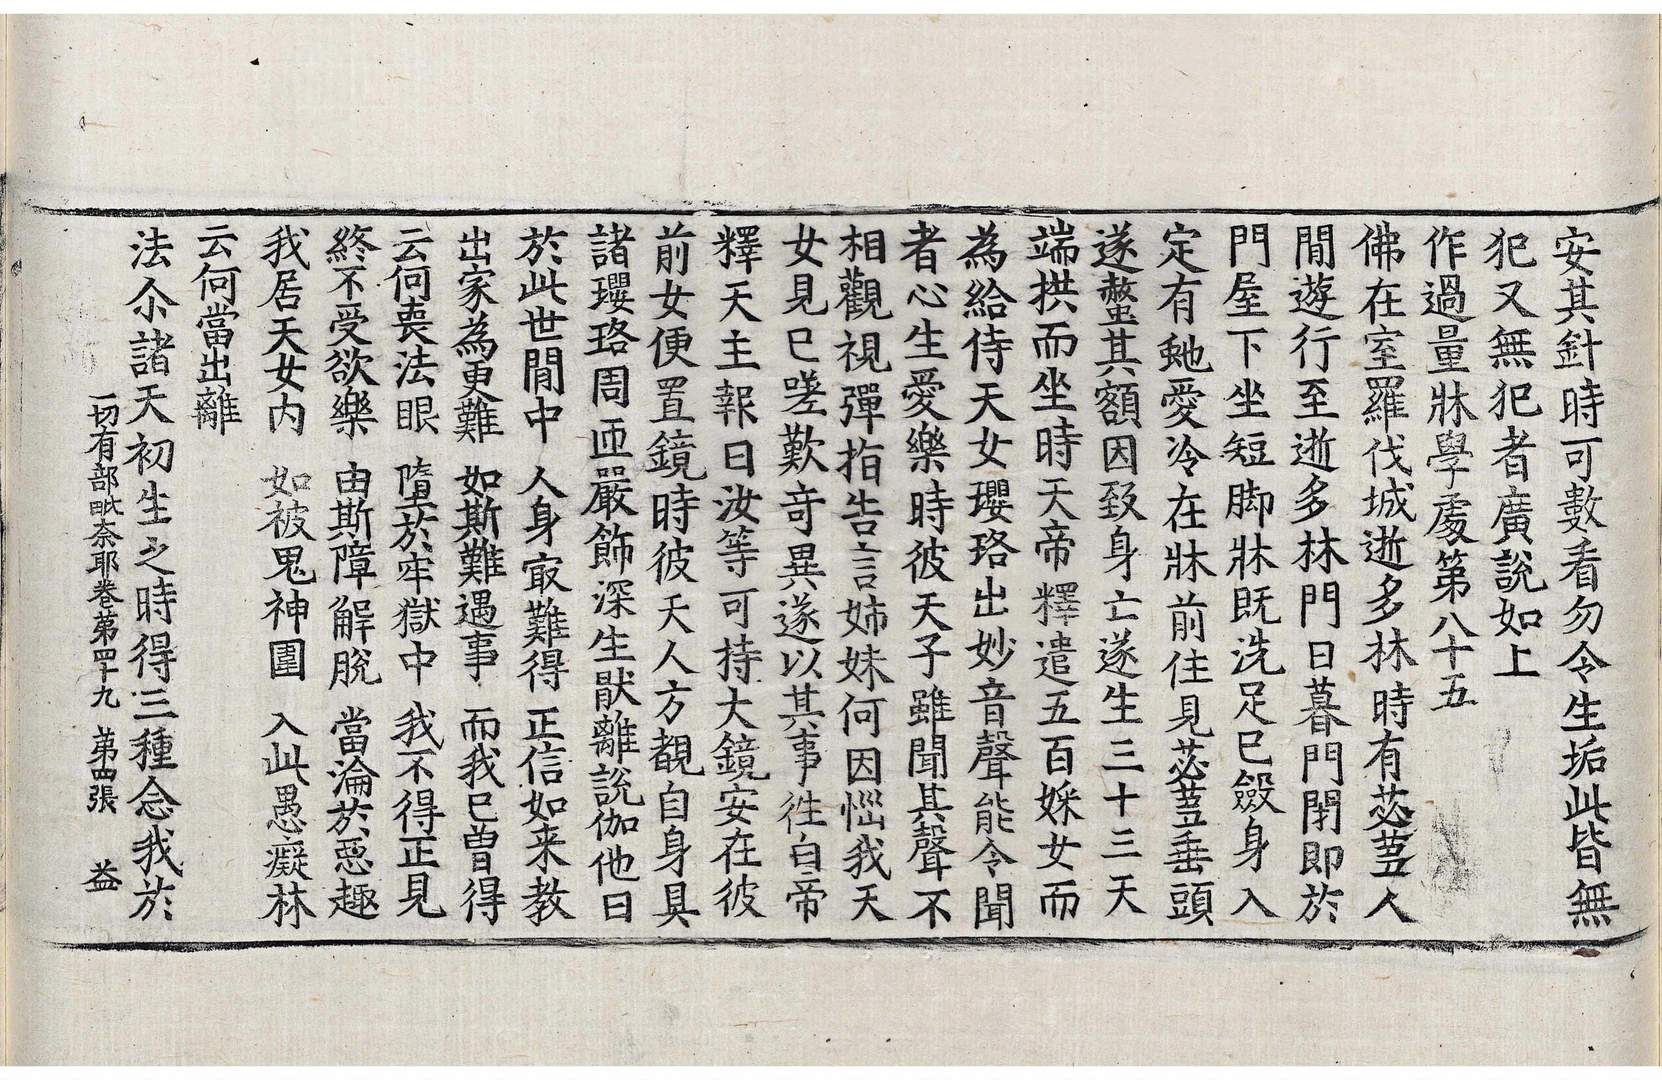 安其針時可數看勿令生垢此皆無
犯又無犯者廣說如上
作過量牀學處第八十五
佛在室羅伐城逝多林時有苾蒭人
間遊行至逝多林門日暮門閉即於
門屋下坐短脚牀既洗足已斂身入
定有虵愛冷在牀前住見苾蒭垂頭
遂螫其額因致身亡遂生三十三天
端拱而坐時天帝釋遣五百婇女而
為給侍天女瓔珞出妙音聲能令聞
者心生愛樂時彼天子雖聞其聲不
相觀視彈指告言姊妹何因惱我天
女見已嗟歎奇異遂以其事往白帝
釋天主報曰汝等可持大鏡安在彼
前女便置鏡時彼天人方覩自身具
諸瓔珞周帀嚴飾深生猒離說伽他曰
於此世間中　人身㝡難得　正信如来教
出家為更難　如斯難遇事　而我已曾得
云何喪法眼　墮於牢獄中　我不得正見
終不受欲樂　由斯障解脫　當淪於惡趣
我居天女内　如被鬼神圍　入此愚癡林
云何當出離
法尒諸天初生之時得三種念我於
一切有部毗奈耶卷第四十九　第四張　益